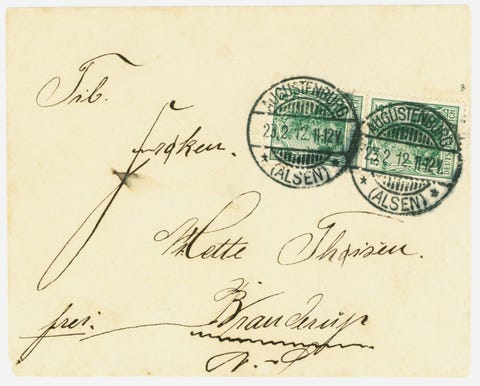 Til.
Frøken.
Mette Thaisen.
Branderup
frei.
AUGUSTENBURG
23.2.12.11-12V.
* (ALSEN) *
AUGUSTENBURG
23.2.12.11-12V.
* (ALSEN) *